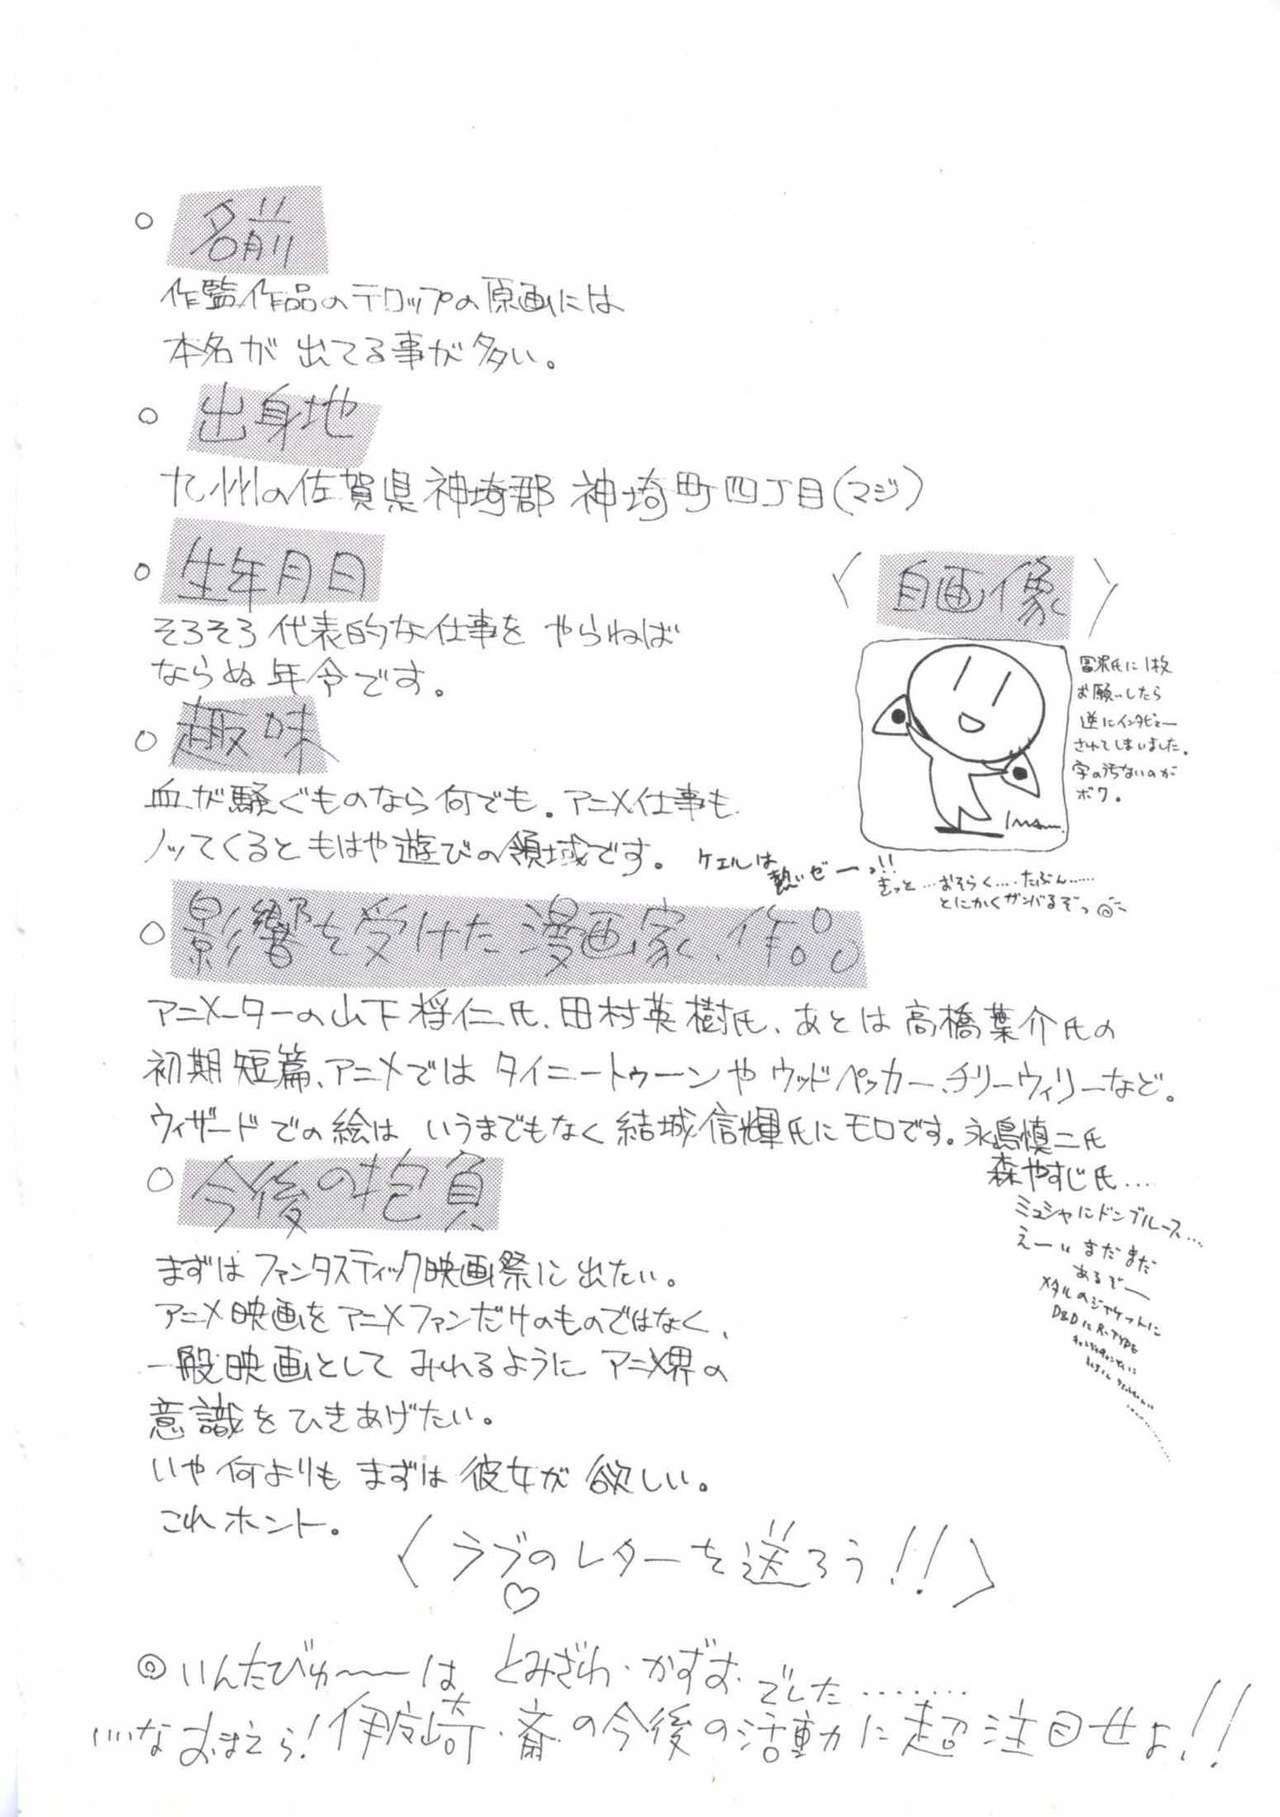 ○ 名前
作監作品のテロップの原画には
本名が出てる事が多い。
○ 出身地
九州の佐賀県神埼郡神埼町四丁目(マジ)
○ 生年月日
そろそろ代表的な仕事をやらねば
ならぬ年令です。
〈自画像〉
冨沢氏に1枚
お願いしたら
逆にインタビュー
されてしまいました。
字の汚ないのが
ボク。
○ 趣味
血が騒ぐものなら何でも。アニメ仕事も
ノッてくるともはや遊びの領域です。
ケエルは
熱いゼーっ!!
きっと…おそらく….たぶん……
とにかくガンバるぞっ
○ 影響を受けた漫画家、作品
アニメーターの山下将仁氏、田村英樹氏、あとは高橋葉介氏の
初期短篇、アニメではタイニートゥーンやウッドペッカー、チリーウィリーなど。
ウィザードでの絵はいうまでもなく結城信輝氏にモロです。永島慎二氏
森やすじ氏…
ミュシャにドンブルース…
えーいまだまだ
あるぞー
メタルのジャケットに
D&DにR-TYPE
○ 今後の抱負
まずはファンタスティック映画祭に出たい。
アニメ映画をアニメファンだけのものではなく、
一般映画としてみれるようにアニメ界の
意識をひきあげたい。
いや何よりもまずは彼女が欲しい。
これホント。
〈ラブのレターを送ろう!!〉
♡
◎いんたびゅ〜〜は とみざわ・かずお でした……..
…..なおまえら!伊皮崎・斎の今後の活動に超注目せよ!!